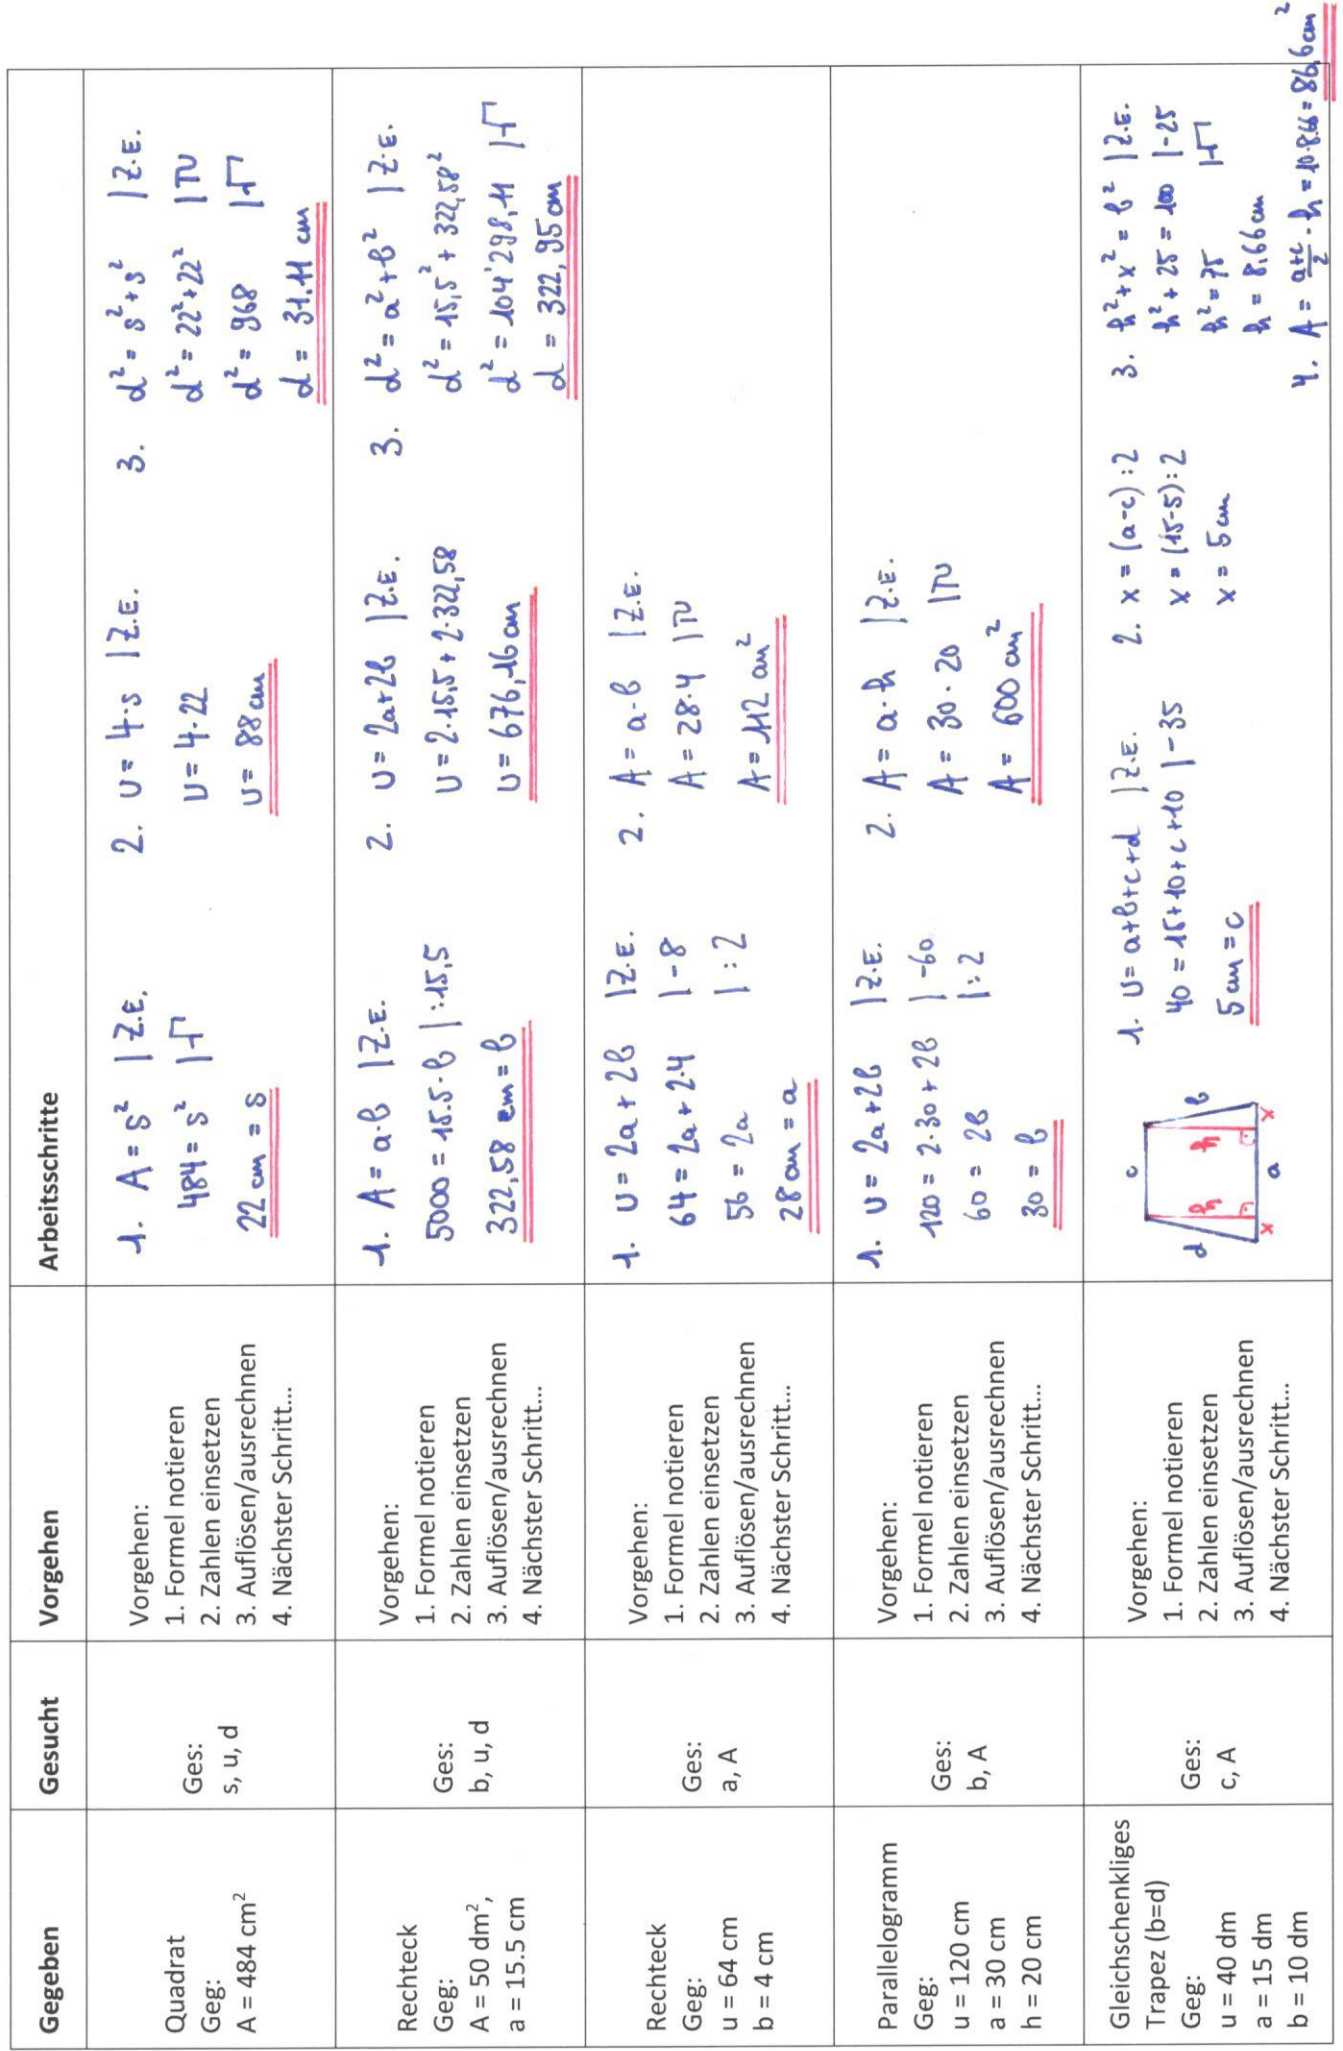 Gegeben
Gesucht
Vorgehen
Arbeitsschritte
Quadrat
Geg:
A = 484 cm²
Ges:
s, u, d
Vorgehen:
1. Formel notieren
2. Zahlen einsetzen
3. Auflösen/ausrechnen
4. Nächster Schritt...
1. A = s² | Z.E.
484 = s² | √
22 cm = s
2. U = 4·s | Z.E.
U = 4·22
U = 88 cm
3. d² = s² + s² | Z.E.
d² = 22² + 22² | TU
d² = 968 | √
d = 31.11 cm
Rechteck
Geg:
A = 50 dm²,
a = 15.5 cm
Ges:
b, u, d
Vorgehen:
1. Formel notieren
2. Zahlen einsetzen
3. Auflösen/ausrechnen
4. Nächster Schritt...
1. A = a·b | Z.E.
5000 = 15.5·b | :15,5
322,58 cm = b
2. U = 2a + 2b | Z.E.
U = 2·15,5 + 2·322,58
U = 676,16 cm
3. d² = a² + b² | Z.E.
d² = 15,5² + 322,58²
d² = 104'298,11 | √
d = 322,95 cm
Rechteck
Geg:
u = 64 cm
b = 4 cm
Ges:
a, A
Vorgehen:
1. Formel notieren
2. Zahlen einsetzen
3. Auflösen/ausrechnen
4. Nächster Schritt...
1. U = 2a + 2b | Z.E.
64 = 2a + 2·4 | -8
56 = 2a | :2
28 cm = a
2. A = a·b | Z.E.
A = 28·4 | TU
A = 112 cm²
Parallelogramm
Geg:
u = 120 cm
a = 30 cm
h = 20 cm
Ges:
b, A
Vorgehen:
1. Formel notieren
2. Zahlen einsetzen
3. Auflösen/ausrechnen
4. Nächster Schritt...
1. U = 2a + 2b | Z.E.
120 = 2·30 + 2b | -60
60 = 2b | :2
30 = b
2. A = a·h | Z.E.
A = 30·20 | TU
A = 600 cm²
Gleichschenkliges
Trapez (b=d)
Geg:
u = 40 dm
a = 15 dm
b = 10 dm
Ges:
c, A
Vorgehen:
1. Formel notieren
2. Zahlen einsetzen
3. Auflösen/ausrechnen
4. Nächster Schritt...
c
d h h b
x a x
1. U = a+b+c+d | Z.E.
40 = 15+10+c+10 | -35
5 cm = c
2. x = (a-c):2
x = (15-5):2
x = 5 cm
3. h² + x² = b² | Z.E.
h² + 25 = 100 | -25
h² = 75 | √
h = 8,66 cm
4. A = (a+c)/2 · h = 10·8.66 = 86,6 cm²